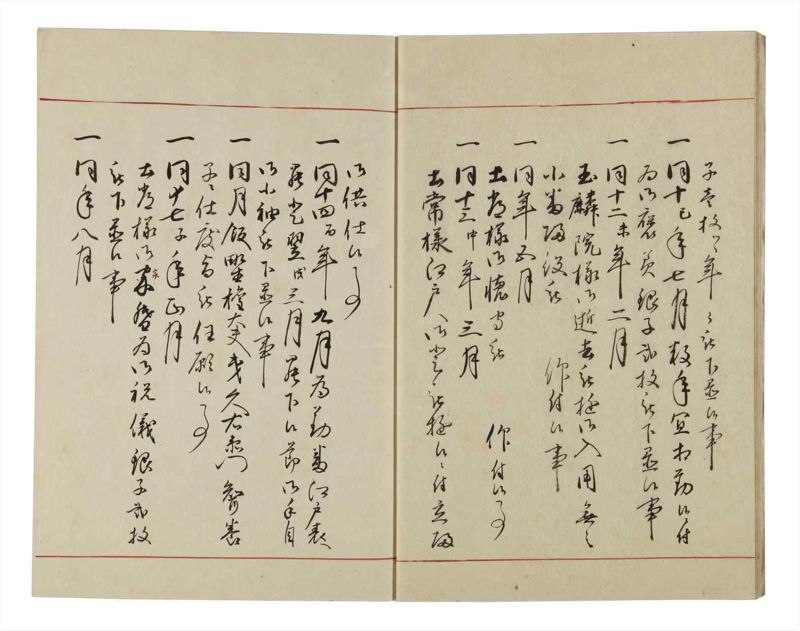 子壱枚ツヽ年々被下置候事
一同十巳年七月数年宜相勤候付
為御褒美銀子弐枚被下置候事
一同十二未年二月
玉麟院様御逝去被遊御入用無之
小番帰役被 仰付候事
一同年五月
土常様御懐守被 仰付候事
一同十三申年三月
土常様江戸へ御登被遊候ニ付立帰
御供仕候事
一同十四酉年九月為勤番江戸表へ
罷登翌戌三月罷下候節御手自
御小袖被下置候事
一同月飯野権太夫弟久右衛門聟養
子ニ仕度旨被任願候事
一同十七子年正月
土常様御家督為御祝儀銀子弐枚
被下置候事
一同年八月